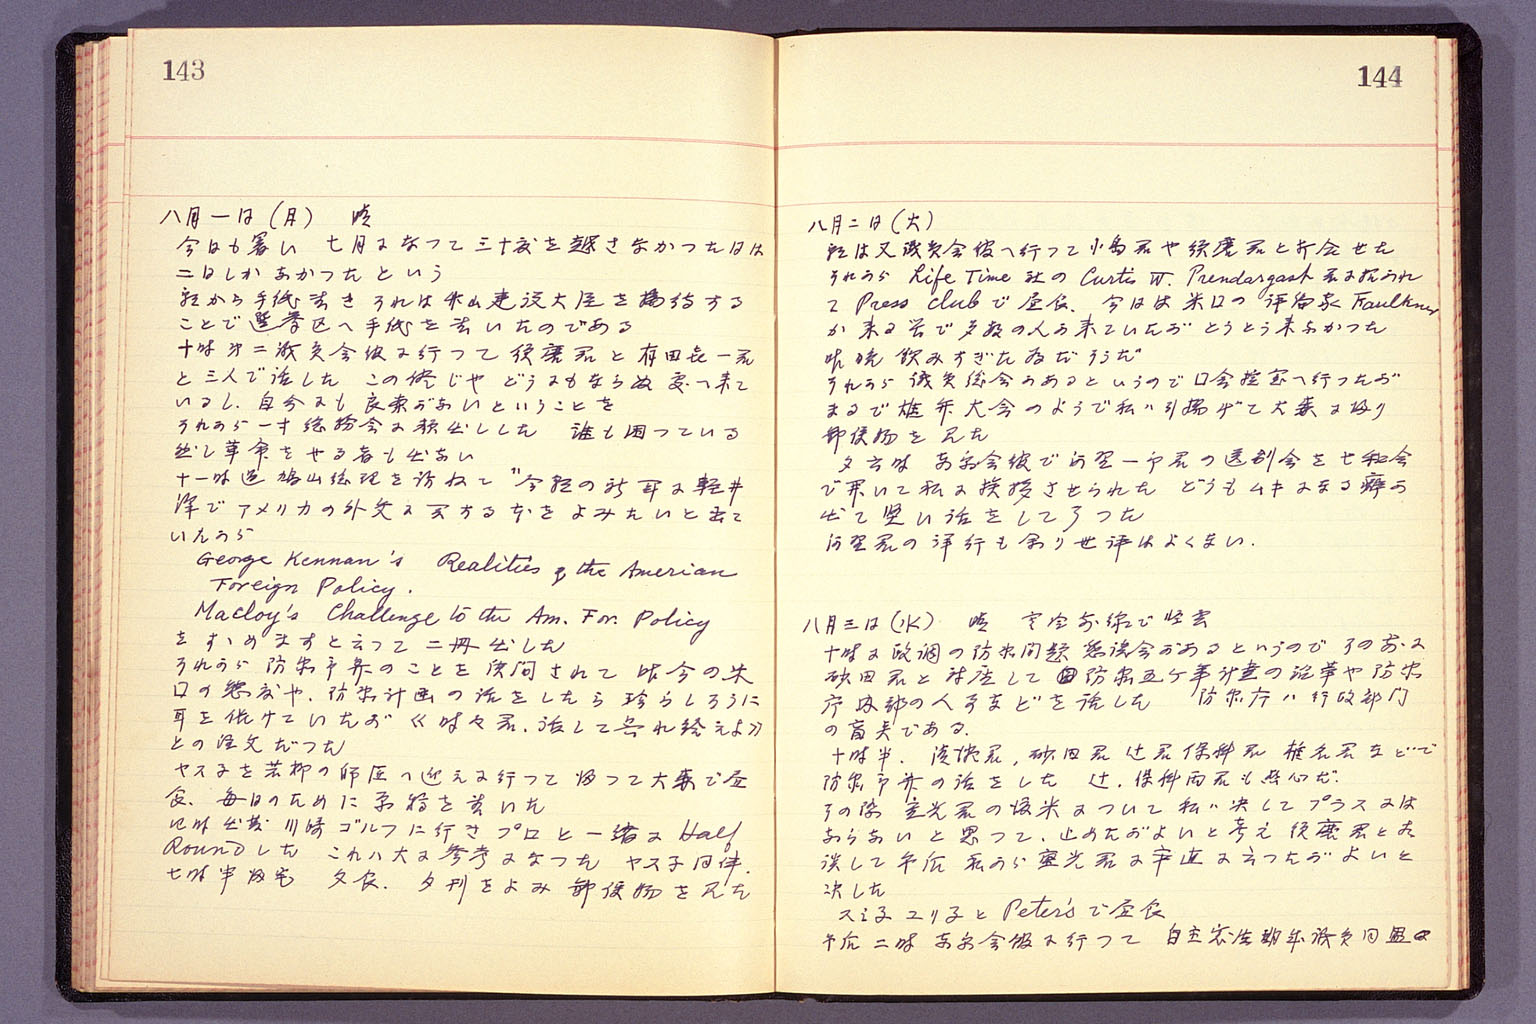 143
八月一日(月) 晴
今日も暑い 七月になつて三十度を越さなかつた日は
二日しかなかつたという
朝から手紙書き それは米山建設大臣を接待する
ことで選挙区へ手紙を書いたのである
十時第二議員会館に行つて須磨君と 一君
と三人で話した この儘じや どうにもならぬ 処へ来て
いるし、自分にも良策がないということを
それから一寸総務会に顔出しした 誰も困つている
然し革命をやる者も出ない
十一時過鳩山総理を訪ねて "今朝の新聞に軽井
澤でアメリカの外交に関する本をよみたいと出て
いたから
George Kennan's Realities of the American
Foreign Policy.
Macloy's Challenge to the Am. For. Policy
をすゝめますと云つて二冊出した
それから防衛予算のことを質問されて 昨今の米
口の態度や、防衛計画の話をしたら珍らしそうに
耳を傾けていたが《時々君、話して呉れ給えよ》
との注文だつた
ヤス子を若柳の師匠へ迎えに行つて 帰つて大森で昼
食、毎日のために原稿を書いた
四時出発 川崎ゴルフに行き プロと一緒に Half
Roundした これハ大に参考になつた ヤス子同伴.
七時半帰宅 夕食. 夕刊をよみ 郵便物を見た
144
八月二日(火)
朝は又議員会館へ行つて小島君や須磨君と打合せた
それから Life Time 社の Curtis W. Prendargast 君に招かれ
て Press Club で昼食、今日は米口の評論家 Faulkner
が来る筈で多数の人が来ていたが とうとう来なかつた
昨晩飲みすぎた為だそうだ
それから議員総会があるというので口会控室へ行つたが
まるで雄弁大会のようで私ハ引揚げて大森に帰り
郵便物を見た
夕六時 会館で河野一 君の送別会を七和会
で開いて私に挨拶させられた どうもムキになる癖が
出て堅い話をして了つた
河野君の洋行も余り世評はよくない.
八月三日(水) 晴 でで怪雲
十時に政調の防衛問題懇談会があるというので その前に
砂田君と対座して 防衛五ケ年計画の沿革や防衛
庁内部の人事などを話した 防衛庁ハ行政部門
の盲点である.
十時半. 須磨君, 砂田君 辻君 保科君 椎名君などで
防衛予算の話をした 辻, 保科両君も熱心だ.
その際 重光君の渡米について私ハ決してプラスには
ならないと思つて、止めたがよいと考え 須磨君とも
談して午后 私から重光君に率直に云つたがよいと
決した
スミ子ユリ子と Peter's で昼食
午后二時 会館に行つて 自主憲法期成議員同盟の